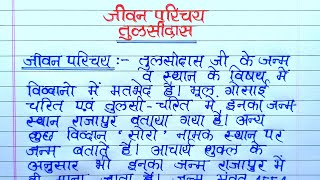 जीवन परिचय
तुलसीदास
जीवन परिचय :- तुलसीदास जी के जन्म
व स्थान के विषय में
विद्वानो में मतभेद है। मूल गोसाई
चरित एवं तुलसी-चरित में इनका जन्म
स्थान राजापुर बताया गया है। अन्य
कुछ विद्वान 'सोरो' नामक स्थान पर
जन्म बताते है। आचार्य शुक्ल के
अनुसार भी इनका जन्म राजापुर में